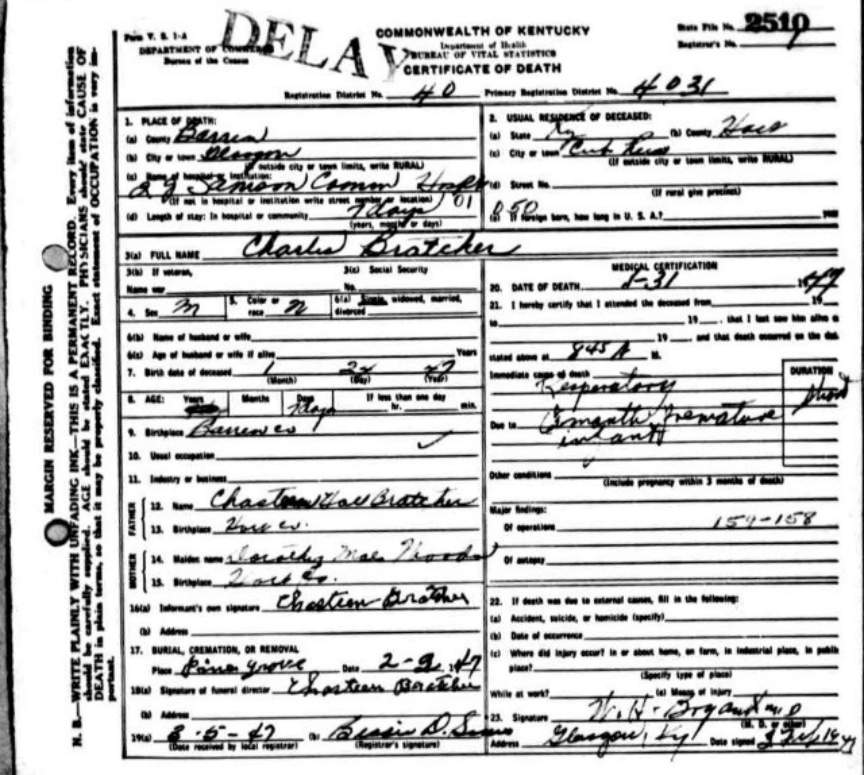 MARGIN RESERVED FOR BINDING
N. B.—WRITE PLAINLY WITH UNFADING INK—THIS IS A PERMANENT RECORD. Every item of information
should be carefully supplied. AGE should be stated EXACTLY. PHYSICIANS should state CAUSE OF
DEATH in plain terms, so that it may be properly classified. Exact statement of OCCUPATION is very im-
portant.
Form V. S. 1-A
DEPARTMENT OF COMMERCE
Bureau of the Census
DELAY
COMMONWEALTH OF KENTUCKY
Department of Health
BUREAU OF VITAL STATISTICS
CERTIFICATE OF DEATH
State File No. 2510
Registrar's No.
Registration District No. 40 Primary Registration District No. 4031
1. PLACE OF DEATH:
(a) County Barren
(b) City or town Glasgow
(If outside city or town limits, write RURAL)
(c) Name of hospital or institution:
T J Samson Comm Hosp
(If not in hospital or institution write street number or location) 01
(d) Length of stay: In hospital or community 7 days
(years, months or days)
2. USUAL RESIDENCE OF DECEASED:
(a) State Ky (b) County Hart
(c) City or town Cub Run
(If outside city or town limits, write RURAL)
(d) Street No.
(If rural give precinct)
050
(e) If foreign born, how long in U. S. A.? years
3(a) FULL NAME Charles Bratcher
3(b) If veteran,
Name war
3(c) Social Security
No.
4. Sex M 5. Color or race 6(a) Single, widowed, married, divorced
6(b) Name of husband or wife
6(c) Age of husband or wife if alive Years
7. Birth date of deceased 1 24 47
(Month) (Day) (Year)
8. AGE: Years Months Days If less than one day
7 days hr. min.
9. Birthplace Barren co
10. Usual occupation
11. Industry or business
FATHER
12. Name Chasteen Bratcher
13. Birthplace Hart co.
MOTHER
14. Maiden name Dorothy Mae Woods
15. Birthplace Hart Co.
16(a) Informant's own signature Chasteen Bratcher
(b) Address
17. BURIAL, CREMATION, OR REMOVAL
Place Pine Grove Date 2-2 1947
18(a) Signature of funeral director Chasteen Bratcher
(b) Address
19(a) 3-5-47 (b) Bessie D.
(Date received by local registrar) (Registrar's signature)
MEDICAL CERTIFICATION
20. DATE OF DEATH 1-31 1947
21. I hereby certify that I attended the deceased from 19
to 19 , that I last saw him alive o
19 , and that death occurred on the date
stated above at 845 A M.
Immediate cause of death
Respiratory
Due to premature
infant
DURATION
Other conditions
(Include pregnancy within 3 months of death)
Major findings:
Of operations 159-158
Of autopsy
22. If death was due to external causes, fill in the following:
(a) Accident, suicide, or homicide (specify)
(b) Date of occurrence
(c) Where did injury occur? in or about home, on farm, in industrial place, in public
place?
(Specify type of place)
While at work? (e) Means of injury
23. Signature W. H. Bryant M D
(M. D. or other)
Address Glasgow, Ky Date signed